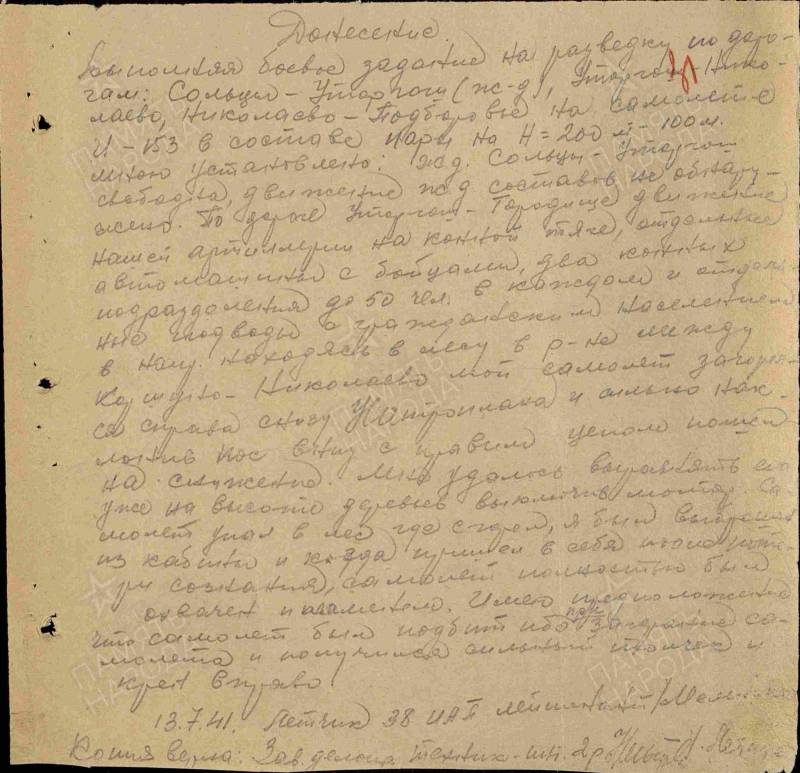 Донесение.
Выполняя боевое задание на разведку по доро-
гам: Сольцы – Уторгош (ж-д), Уторгош – Нико-
лаево, Николаево – Подборовье на самолет-е
И – 153 в составе пары на Н = 200 м – 100 м.
мною установлено: жд. Сольцы – Уторгош
свободна, движение жд составов не обнару-
жено. По дороге Уторгош – Городище движение
нашей артиллерии на конной тяге, отдельные
автомашины с бойцами, два конных
подразделения до 50 чел. в каждом и отдель-
ные подводы с гражданским населением
в напр. Находясь в лесу в р-не между
– Николаево мой самолет загорел-
ся справа снизу и сильно нак-
лонив нос вниз с правым углом пошел
на снижение. Мне удалось выравнять его
уже на высоте деревьев выключив мотор. Са-
молет упал в лес где сгорел, я был выброшен
из кабины и когда пришел в себя после поте-
ри сознания, самолет полностью был
охвачен пламенем. Имею предположение
что самолет был подбит ибо при загорание са-
молета я получился сильный толчек и
крен вправо.
13.7.41. Летчик 38 ИАП
Копия верна: Зав. делопр. техник-инт. 2р